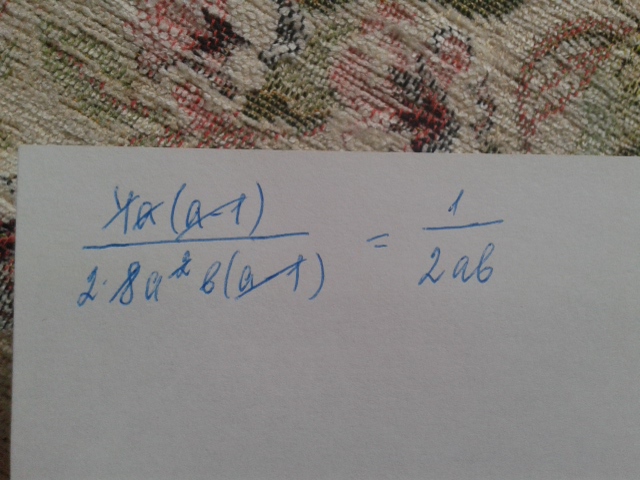 4a(a-1) / 2·8a²b(a-1) = 1 / 2ab